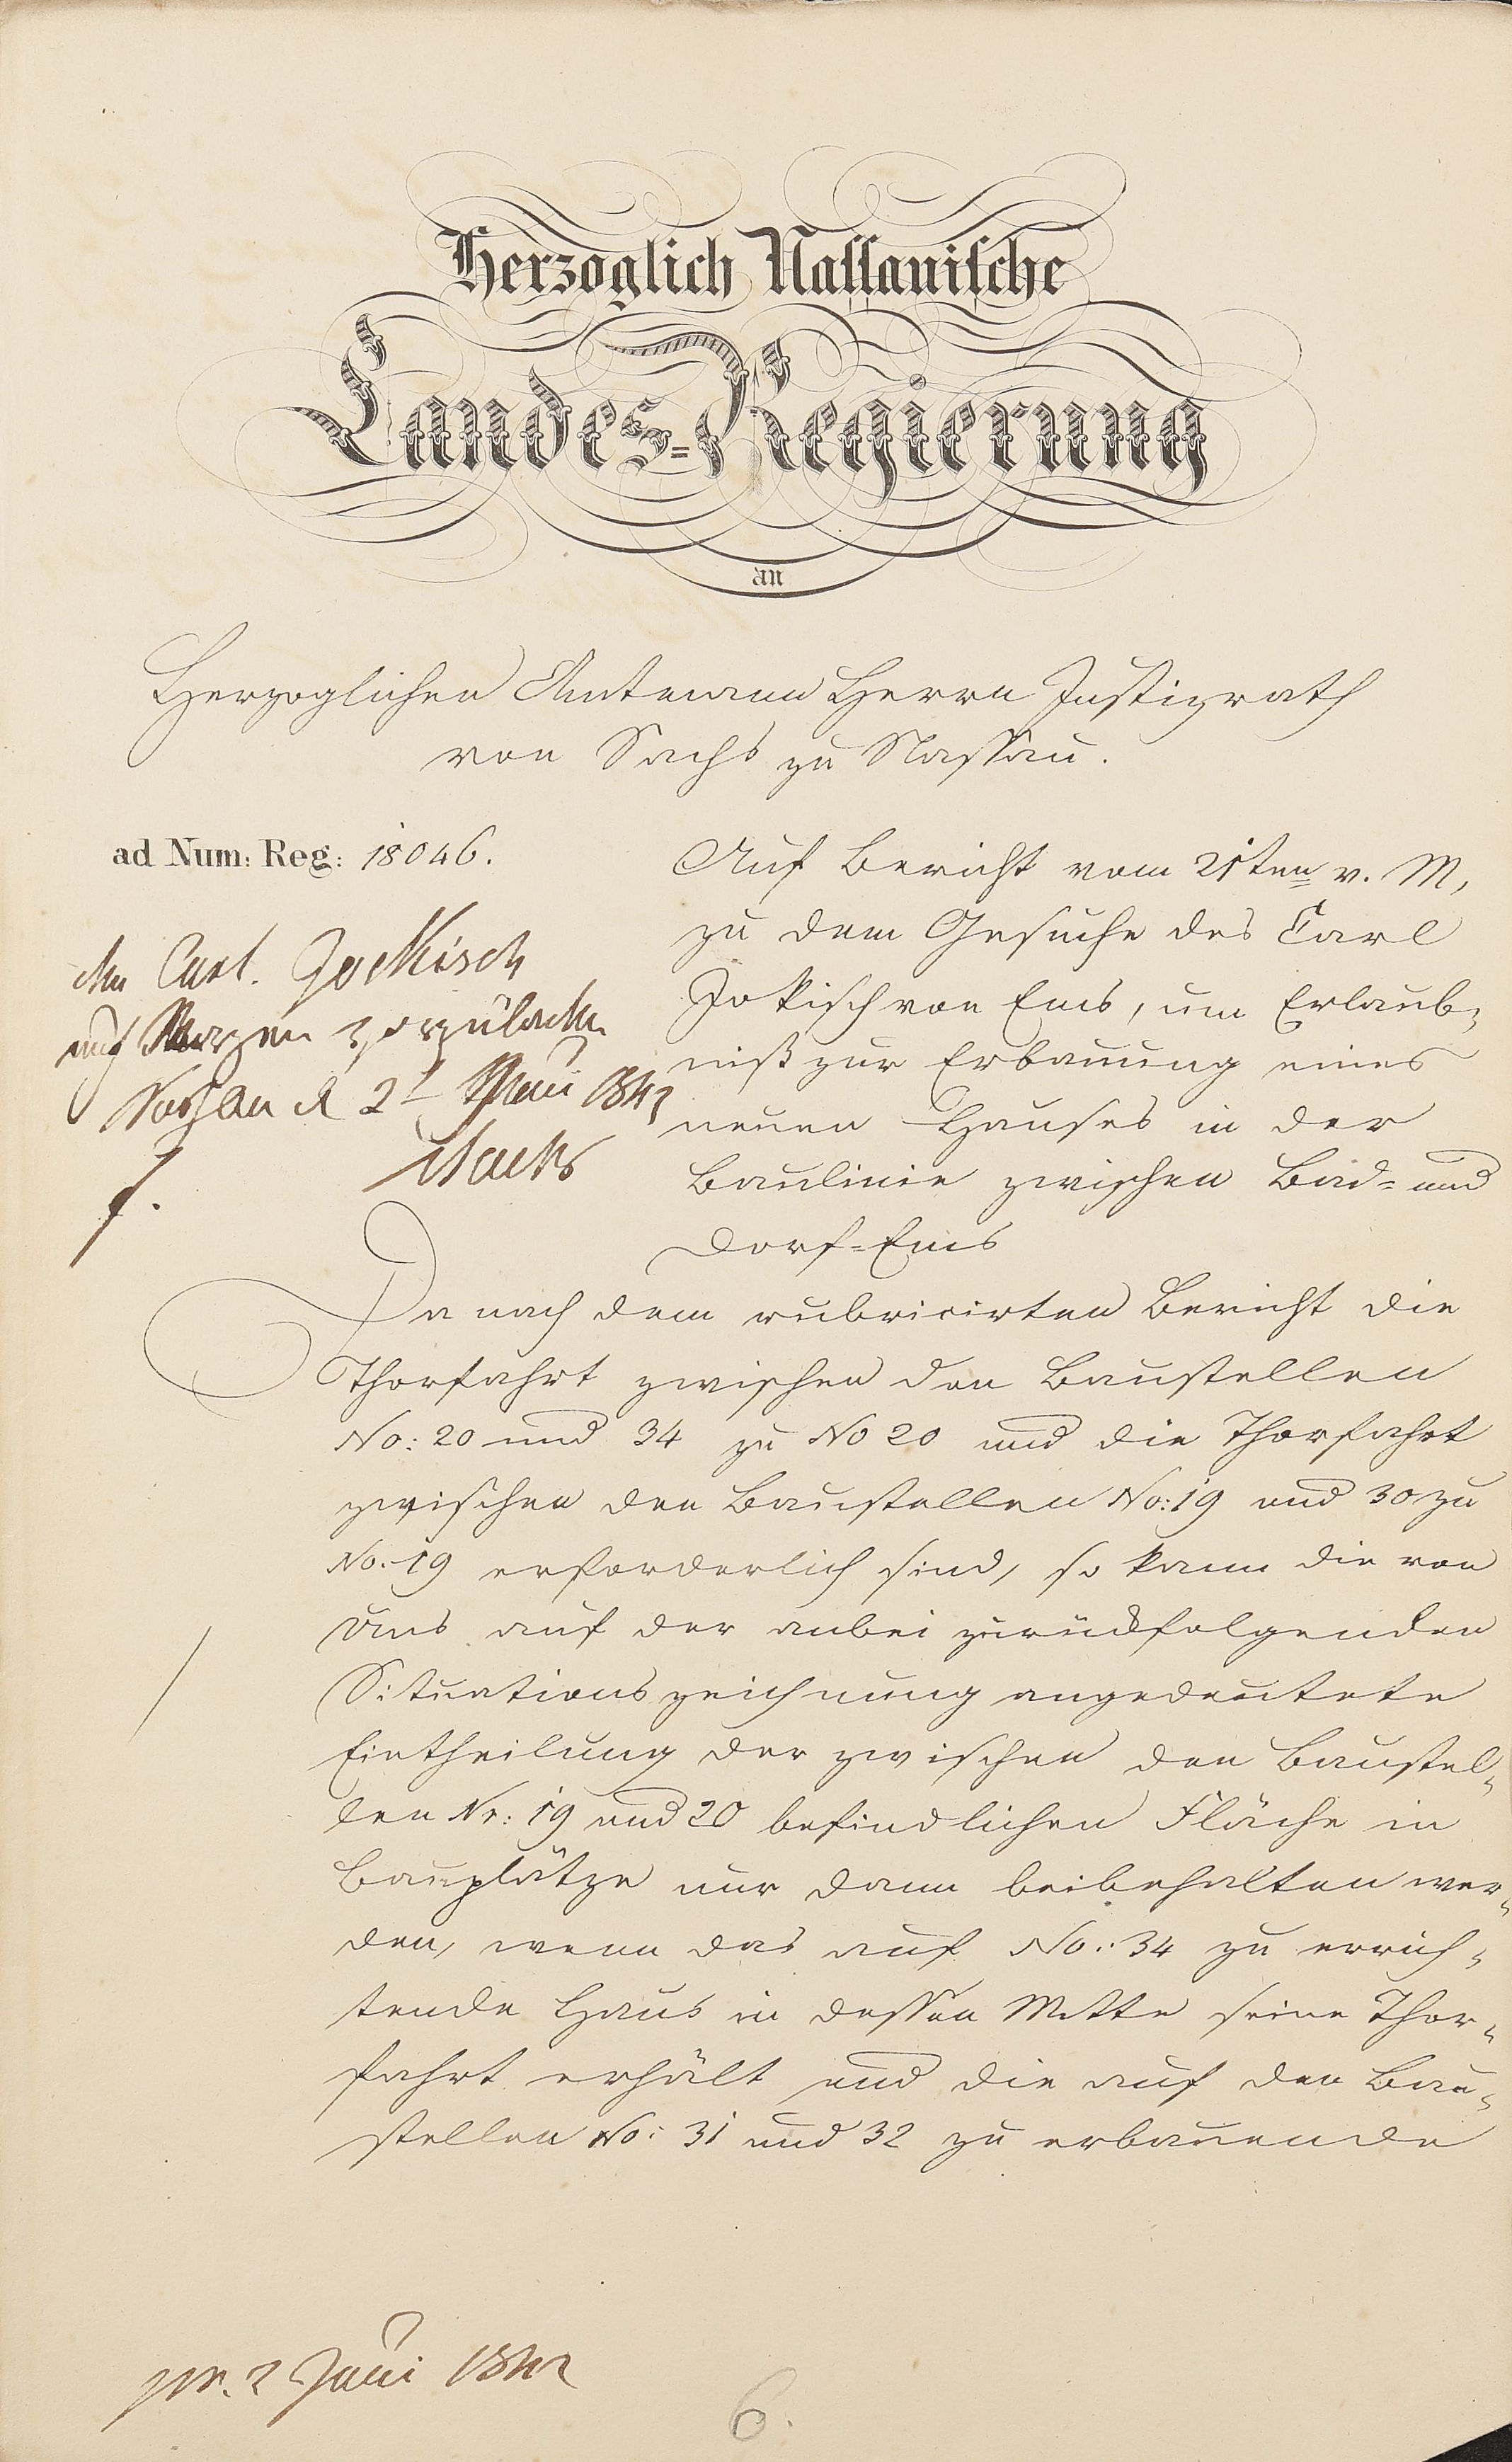 Herzoglich Nassauische
Landes-Regierung
an
Herzoglichen Amtmann Herrn Justizrath
von Sachs zu Nassau.
ad Num: Reg: 18046.
Auf Bericht vom 21ten v. M,
zu dem Gesuche des Carl
Jokisch von Ems, um Erlaub-
niß zur Erbauung eines
neuen Hauses in der
Baulinie zwischen Bad- und
Dorf-Ems
Carl. Jockisch
auf Morgen vorzuladen
Nassau d 2t Juni 1842
Sachs
f.
Da nach dem rubricirten Bericht die
Thorfahrt zwischen den Baustellen
No: 20 und 34 zu No 20 und die Thorfahrt
zwischen den Baustellen No: 19 und 30 zu
No. 19 erforderlich sind, so kann die von
Uns auf der anbei zurückfolgenden
Situationszeichnung angedeutete
Eintheilung der zwischen den Baustel-
len Nr: 19 und 20 befindlichen Fläche in
Bauplätze nur dann beibehalten wer-
den, wenn das auf No: 34 zu errich-
tende Haus in dessen Mitte seine Thor-
fahrt erhält und die auf den Bau-
stellen No: 31 und 32 zu erbauende
pr. 2 Juni 1842
6.